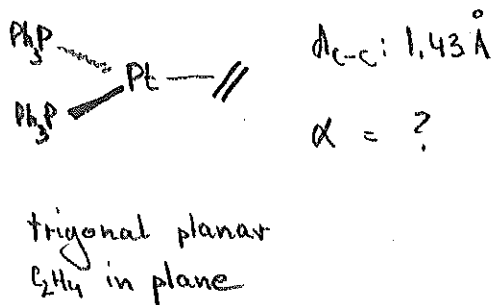 Ph₃P
Pt
Ph₃P
d_C-C : 1,43 Å
α = ?
trigonal planar
C₂H₄ in plane